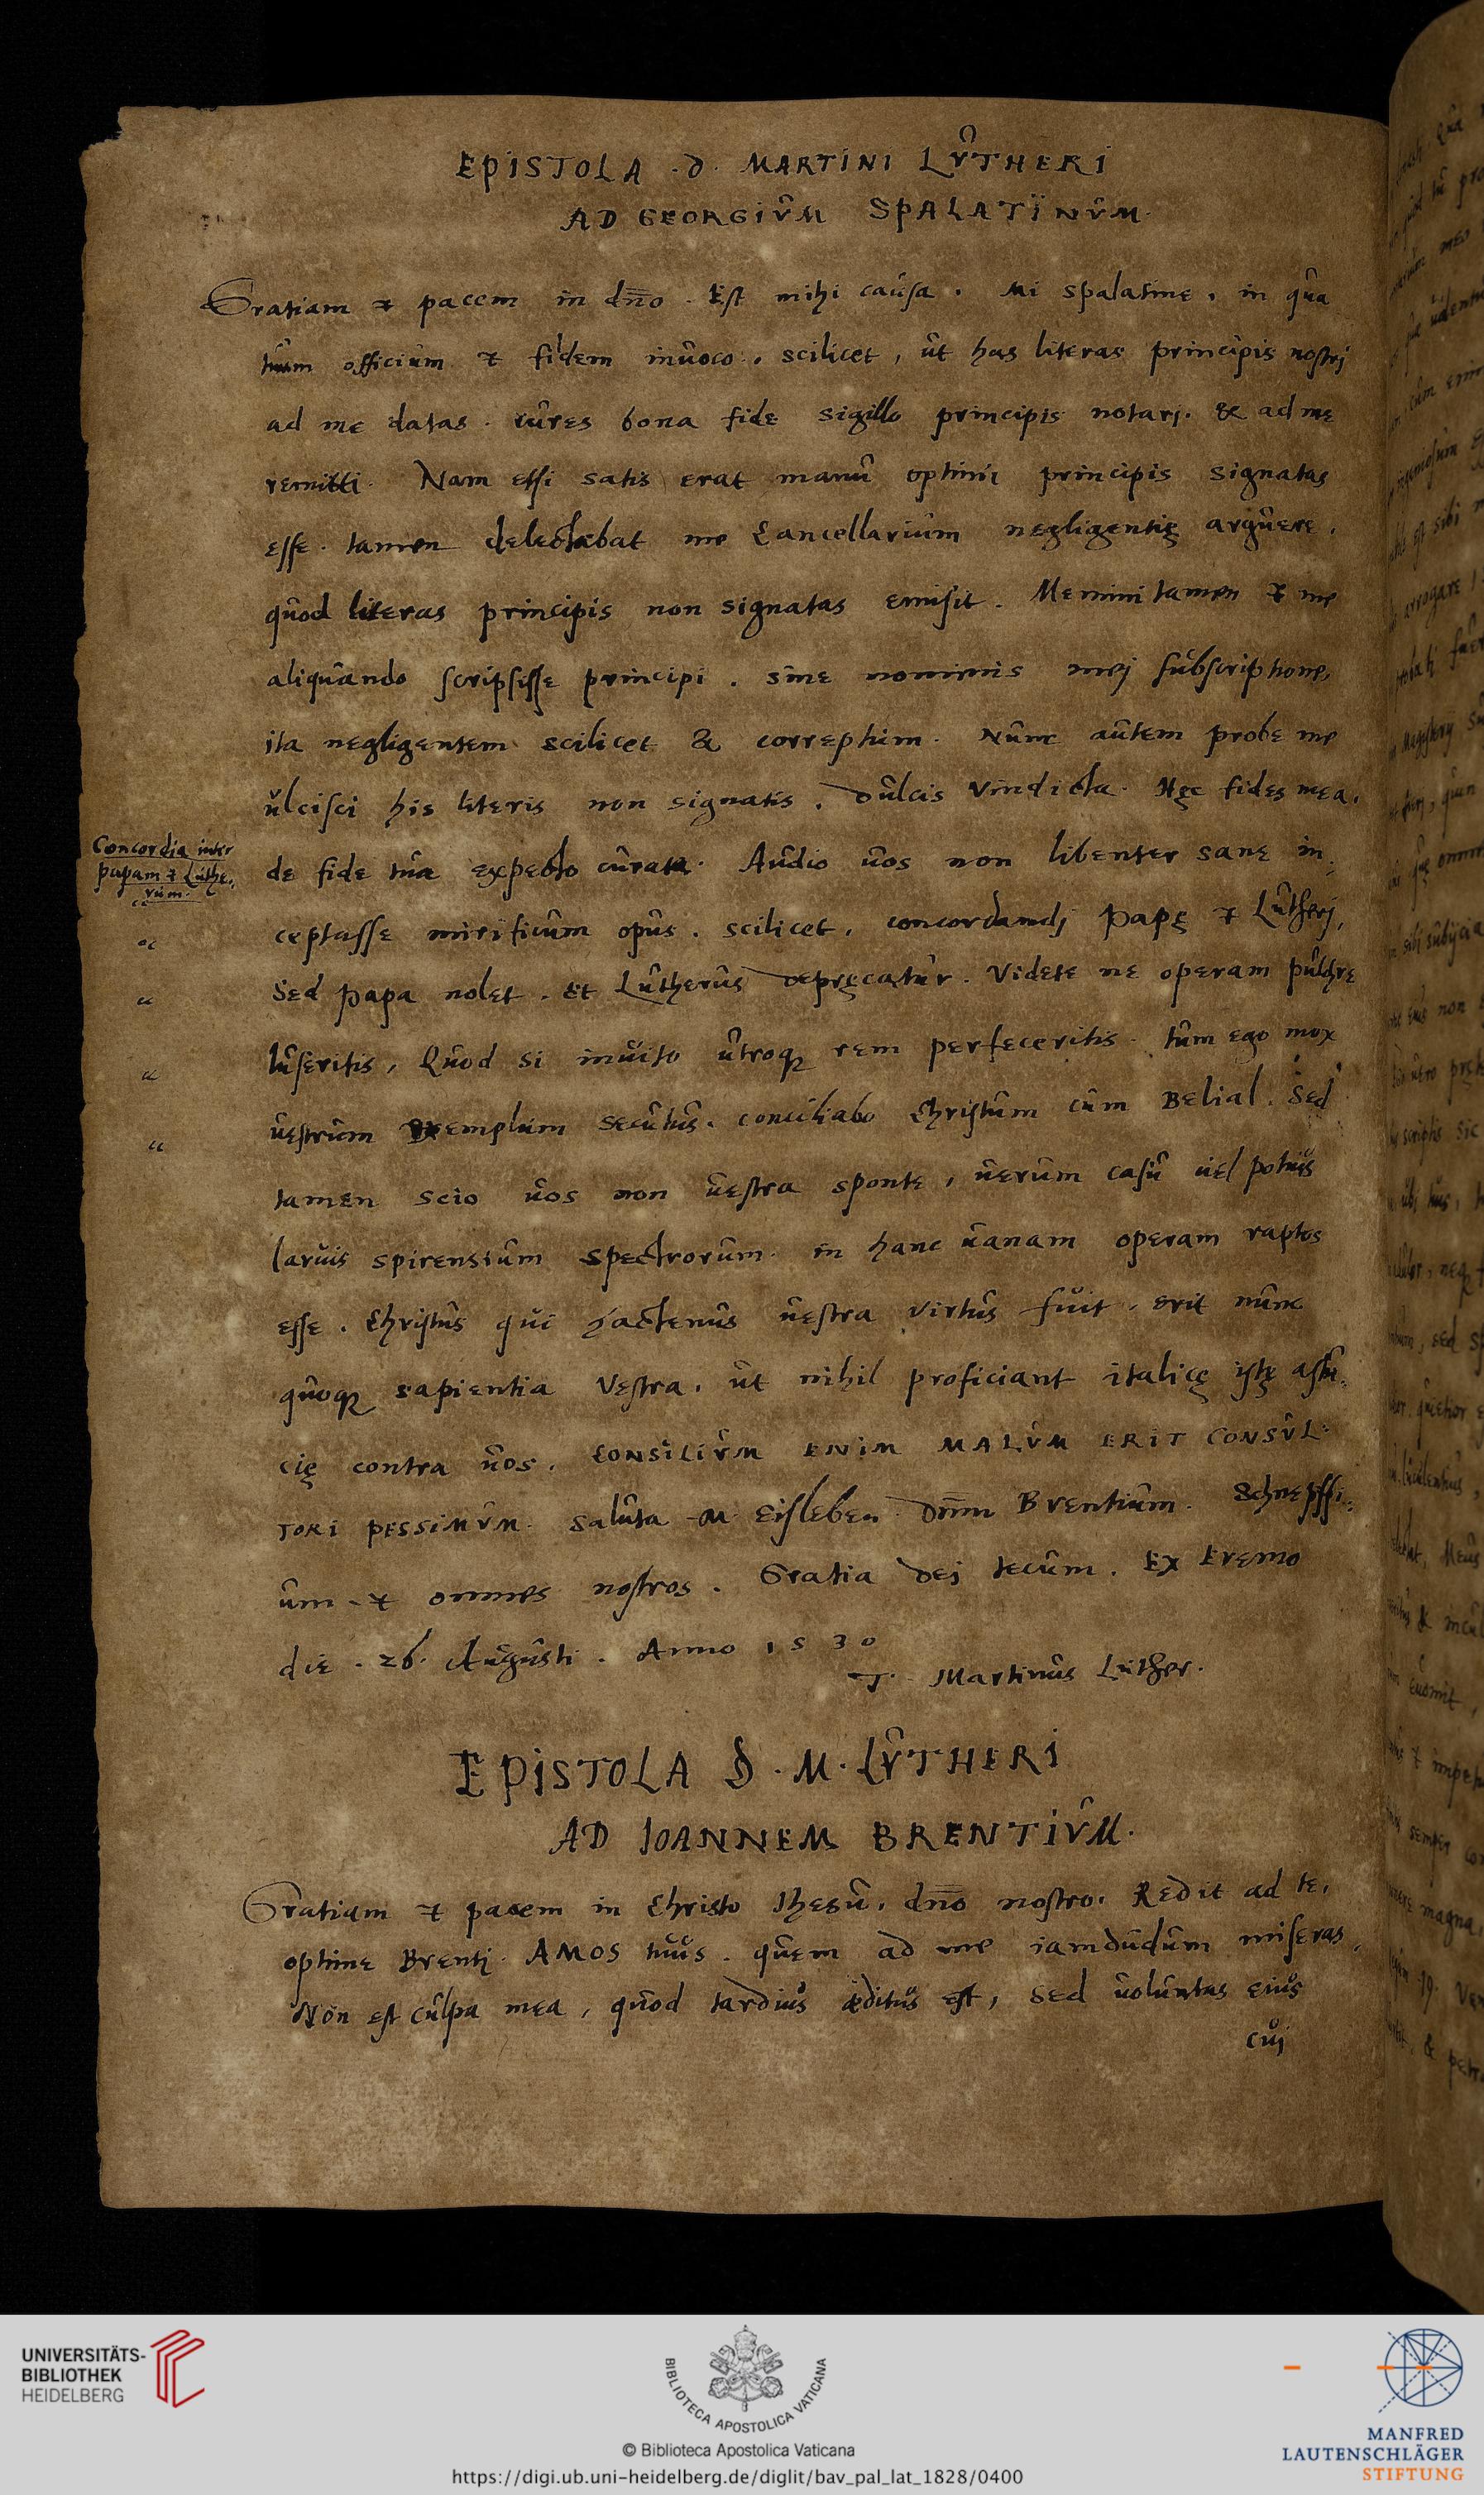 EPISTOLA .D. MARTINI LVTHERI
AD GEORGIVM SPALATINVM.
Gratiam & pacem in dn̄o. Est mihi causa. Mi spalatine, in qua
tuum officium & fidem inuoco. scilicet, ut has literas principis nostrj
ad me datas. cures bona fide sigillo principis notarj. & ad me
remitti. Nam etsi satis erat manu optimi principis signatas
esse. tamen delectabat me Cancellarium negligentię arguere,
quod literas principis non signatas emisit. Memini tamen & me
aliquando scripsisse principi. sine nominis mej subscriptione,
ita negligentem scilicet & correptum. Nunc autem probe me
ulcisci his literis non signatis. Dulcis vindicta. Hęc fides mea,
de fide tua expecto curata. Audio uos non libenter sane in:
ceptasse mirificum opus. scilicet, concordandj Papę & Lutherj,
Sed Papa nolet. Et Lutherus depręcatur. Videte ne operam pulchre
luseritis, Quod si inuito utroq; rem perfeceritis. tum ego mox
uestrum exemplum secutus. conciliabo Christum cum Belial. Sed
tamen scio uos non uestra sponte, uerum casu uel potius
laruis spirensium spectrorum. in hanc uanam operam raptos
esse. Christus qui hactenus uestra virtus fuit, erit nunc
quoq; sapientia vestra, ut nihil proficiant italicę istę astu:
cię contra uos. CONSILIVM ENIM MALVM ERIT CONSVL:
TORI PESSIMVM. Saluta M. Eisleben. Dn̄m Brentium. Schnepffi:
um. & omnes nostros. Gratia dej tecum. Ex Eremo
die. 26. Augusti. Anno 1530
T. Martinus Luther.
Concordia inter
papam & Luthe:
rum.
“
“
“
“
“
EPISTOLA D. M. LVTHERI
AD IOANNEM BRENTIVM.
Gratiam & pacem in Christo Ihesu, dn̄o nostro. Redit ad te,
optime Brentj. AMOS tuus. quem ad me iamdudum miseras,
Non est culpa mea, quod tardius æditus est, sed uoluntas eius
cuj
UNIVERSITÄTS-
BIBLIOTHEK
HEIDELBERG
BIBLIOTECA APOSTOLICA VATICANA
© Biblioteca Apostolica Vaticana
https://digi.ub.uni-heidelberg.de/diglit/bav_pal_lat_1828/0400
MANFRED
LAUTENSCHLÄGER
STIFTUNG